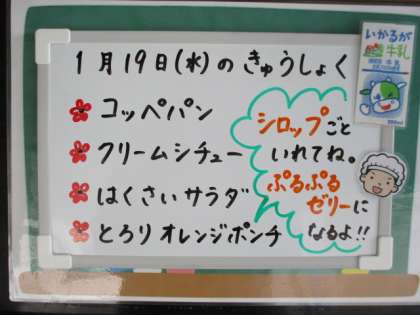 1月19日(水)のきゅうしょく
コッペパン
クリームシチュー
はくさいサラダ
とろりオレンジポンチ
シロップごと
いれてね。
ぷるぷる
ゼリーに
なるよ!!
いかるが
牛乳